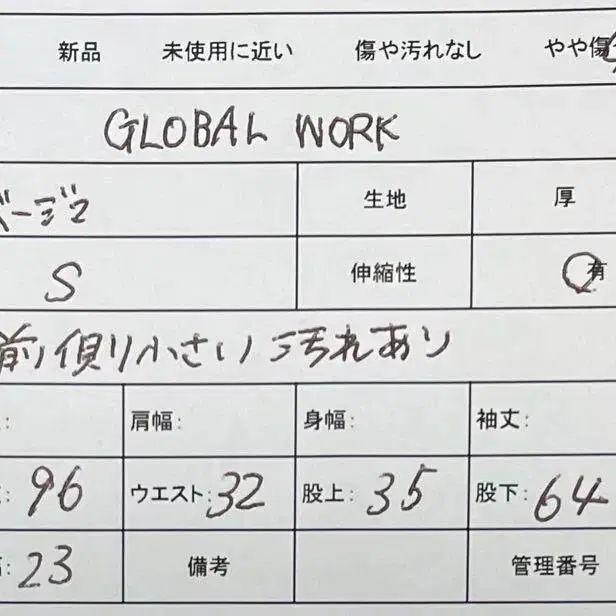 新品 未使用に近い 傷や汚れなし やや傷
GLOBAL WORK
ベージュ 生地 厚
S 伸縮性 有
前側小さい汚れあり
: 肩幅: 身幅: 袖丈:
: 96 ウエスト: 32 股上: 35 股下: 64
: 23 備考 管理番号